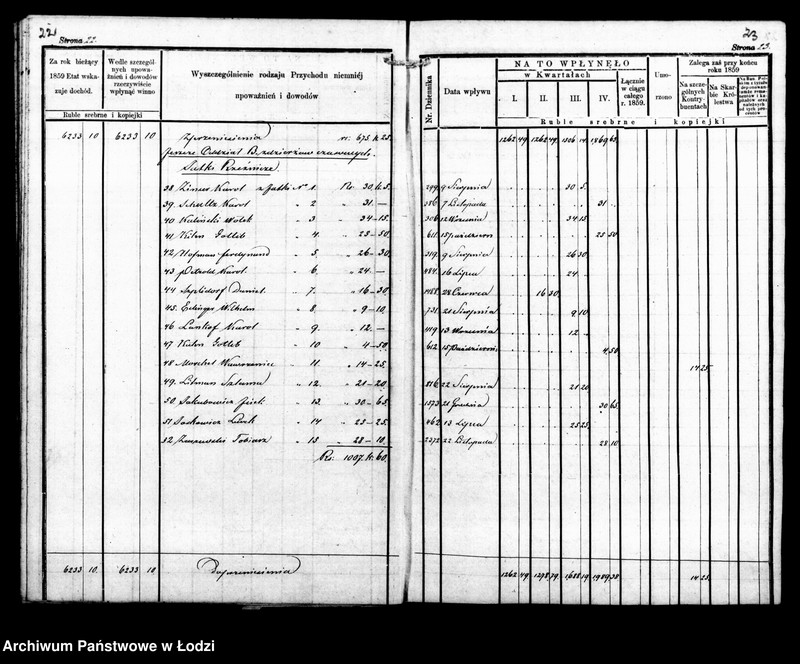 22
Strona 22.
Za rok bieżący 1859 Etat wskazuje dochód.
Wedle szczególnych upoważnień i dowodów rzeczywiście wpłynąć winno
Wyszczególnienie rodzaju Przychodu niemniéj upoważnień i dowodów
Ruble srebrne i kopiejki
6233 10 6233 10 Zprzeniesienia rs. 675. k. 25
Jatki Rzeźnicze.
38 Karol z Jatki No 1. Rs. 30. k. 5.
39. Scheltz Karol " 2 " 31. —
40 Kaliński Wojc. " 3 " 34-15.
41 Kühn Gotlib " 4. " 25-50.
42 Hofman Ferdynand " 5. " 26-30.
43 Karol. " 6. " 24. —
44 Daniel. " 7. " 16-30.
45. Wilhelm " 8. " 9-10.
46 Karol " 9. " 12. —
47 Kühn Gotlib " 10 " 4-50.
48 Wawrzeniec " 11. " 14-25.
49. Litman " 12. " 21-20.
50 Jakubowicz " 13. " 30-65.
51 Sackowicz " 14 " 25-25.
52 Tobiasz " 15 " 28-10.
Rs. 1007. k. 60.
6233 10. 6233 10 Doprzeniesienia
23
Strona 23.
Nr. Dziennika
Data wpływu
NA TO WPŁYNĘŁO
w Kwartałach
I. II. III. IV.
Łącznie w ciągu całego r. 1859.
Umorzono
Zalega zaś przy końcu roku 1859
Na szczególnych Kontrybuentach
Na Skarbie Królestwa
Ruble srebrne i kopiejki
1262 49. 1262 49. 1506 14. 1869 63.
249. 9 Sierpnia 30 5.
586 7 Listopada 31
306 12 Września 34 15.
611. 15 Październ. 25 50
319. 9 Sierpnia 26 30.
484. 16 Lipca 24 —
1488. 28 Czerwca 16 30.
738. 20 Sierpnia 9 10
419 13 Września 12
612. 15 Październ. 4 50
14 25.
516 22 Sierpnia 21 20
1573 21 Grudnia 30 65.
462 13 Lipca 25 25.
2372 22 Listopada 28 10
1262 49 1278 79. 1688 19 1989 38 14 25.
Archiwum Państwowe w Łodzi